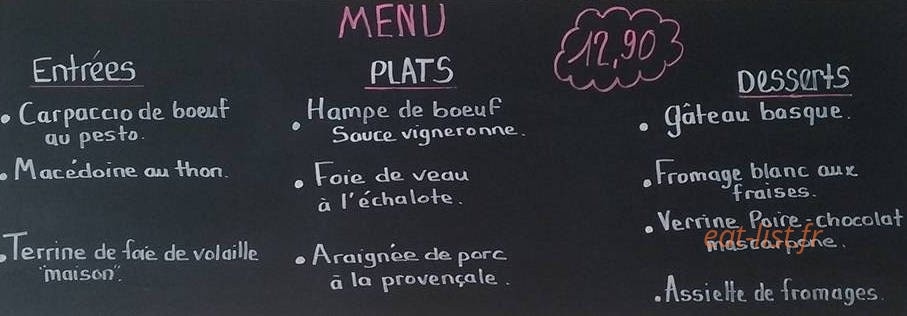 MENU
12,90
Entrées
• Carpaccio de boeuf
au pesto.
• Macédoine au thon.
• Terrine de foie de volaille
"maison".
PLATS
• Hampe de boeuf
Sauce vigneronne.
• Foie de veau
à l'échalote.
• Araignée de porc
à la provençale.
Desserts
• gâteau basque.
• Fromage blanc aux
fraises.
• Verrine Poire-chocolat
mascarpone.
eat-list.fr
• Assiette de fromages.